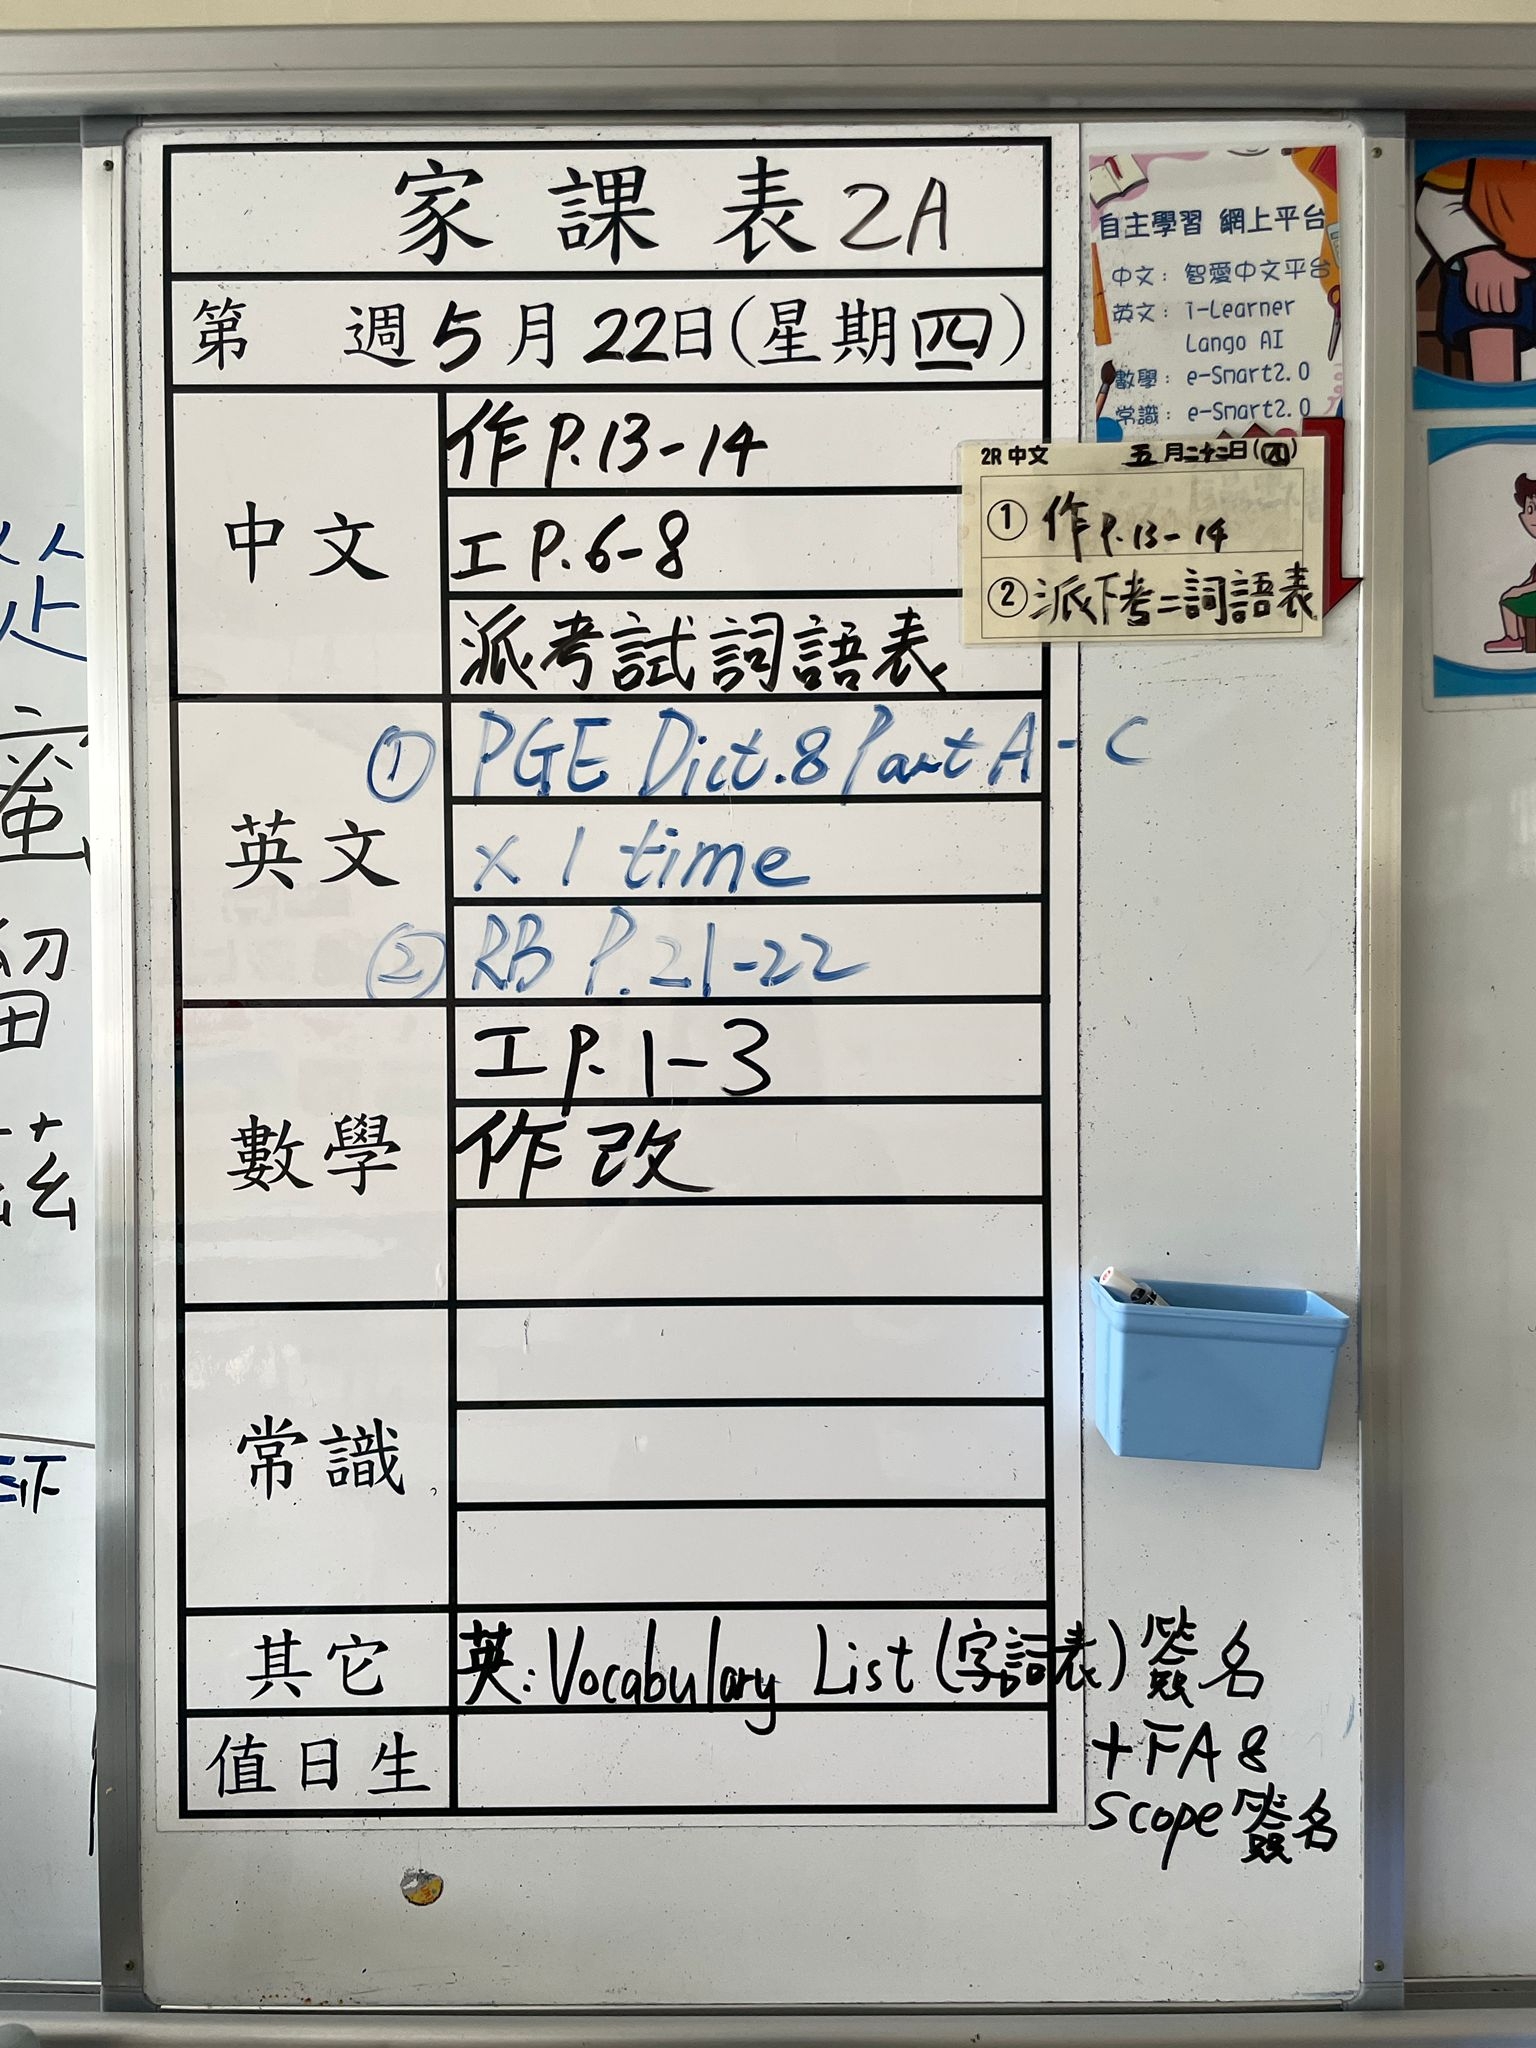 家課表 2A
第 週 5月22日(星期四)
中文
作 P.13-14
工 P.6-8
派考試詞語表
英文
① PGE Dict.8 Part A-C
x 1 time
② RB P.21-22
數學
工 P.1-3
作改
常識
其它
英:Vocabulary List (字詞表) 簽名
+FA 8
Scope 簽名
值日生
自主學習 網上平台
中文: 智愛中文平台
英文: i-Learner
Lango AI
數學: e-Smart2.0
常識: e-Smart2.0
2R 中文 五月二十二日(四)
① 作 P.13-14
② 派下考二詞語表
留